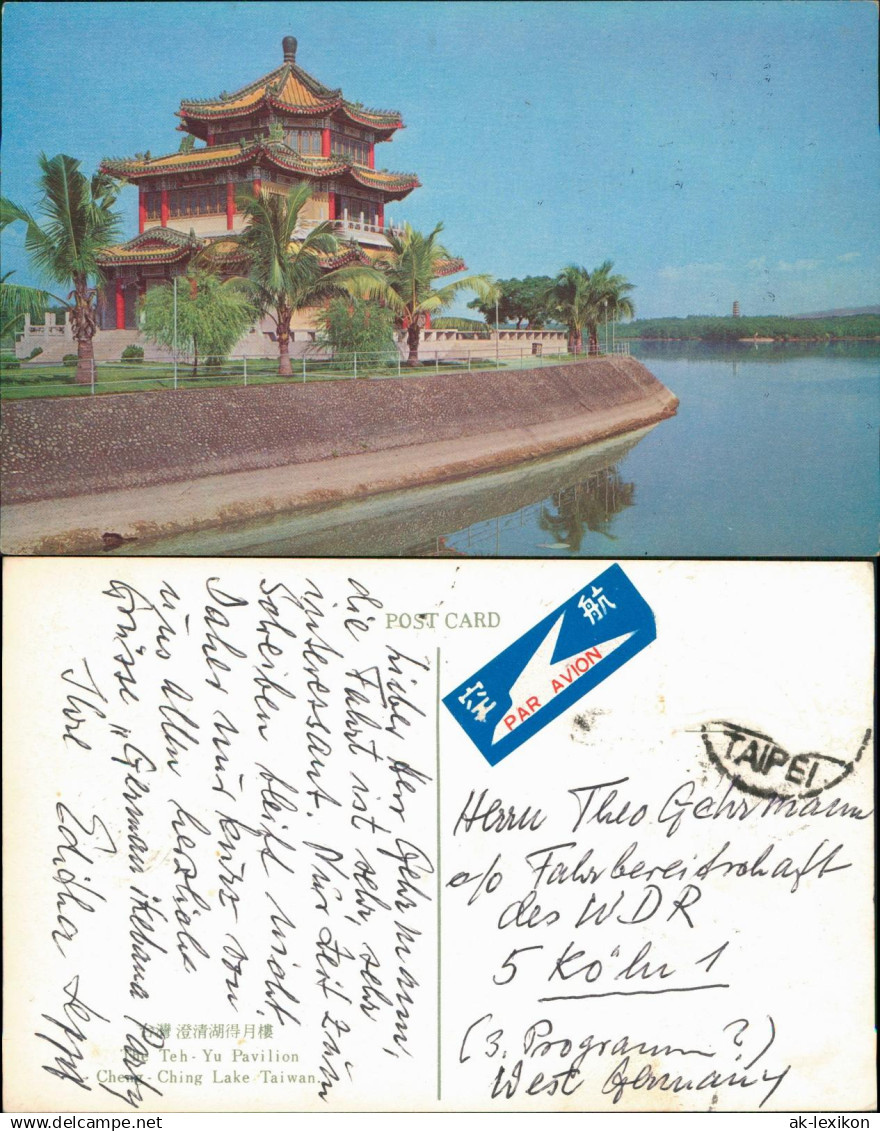 POST CARD
航
空
PAR AVION
TAIPEI
Lieber Herr Gehrmann,
die Fahrt ist sehr, sehr
interessant. Nur Zeit zum
Schreiben bleibt nicht.
Daher nur kurz von
uns allen herzliche
Grüsse „German Ikebana Party
Ihre
Herrn Theo Gehrmann
c/o Fahrbereitschaft
des WDR
5 Köln 1
(3. Programm?)
West Germany
台灣 澄清湖得月樓
The Teh-Yu Pavilion
Cheng-Ching Lake Taiwan.
© oldthing.com
ak-lexikon